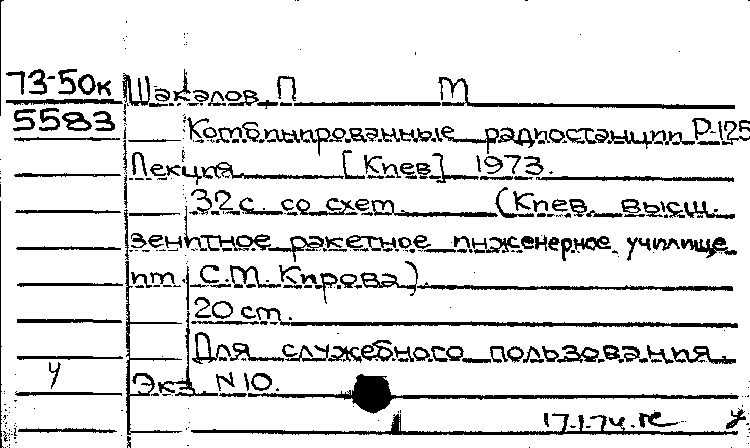 73-50к Шакалов, П М
5583 Комбинированные радиостанции Р-125
Лекция. [Киев] 1973.
32 с. со схем. (Киев. высш.
зенитное ракетное инженерное училище
им. С.М. Кирова).
20 см.
Для служебного пользования.
у Экз. N 10.
17.1.74.